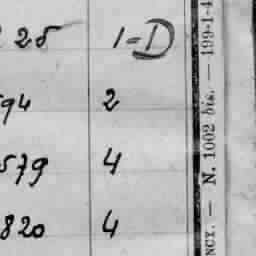 25 1=D
94 2
579 4
820 4
NCY. — N. 1002 bis. — 199-1-4